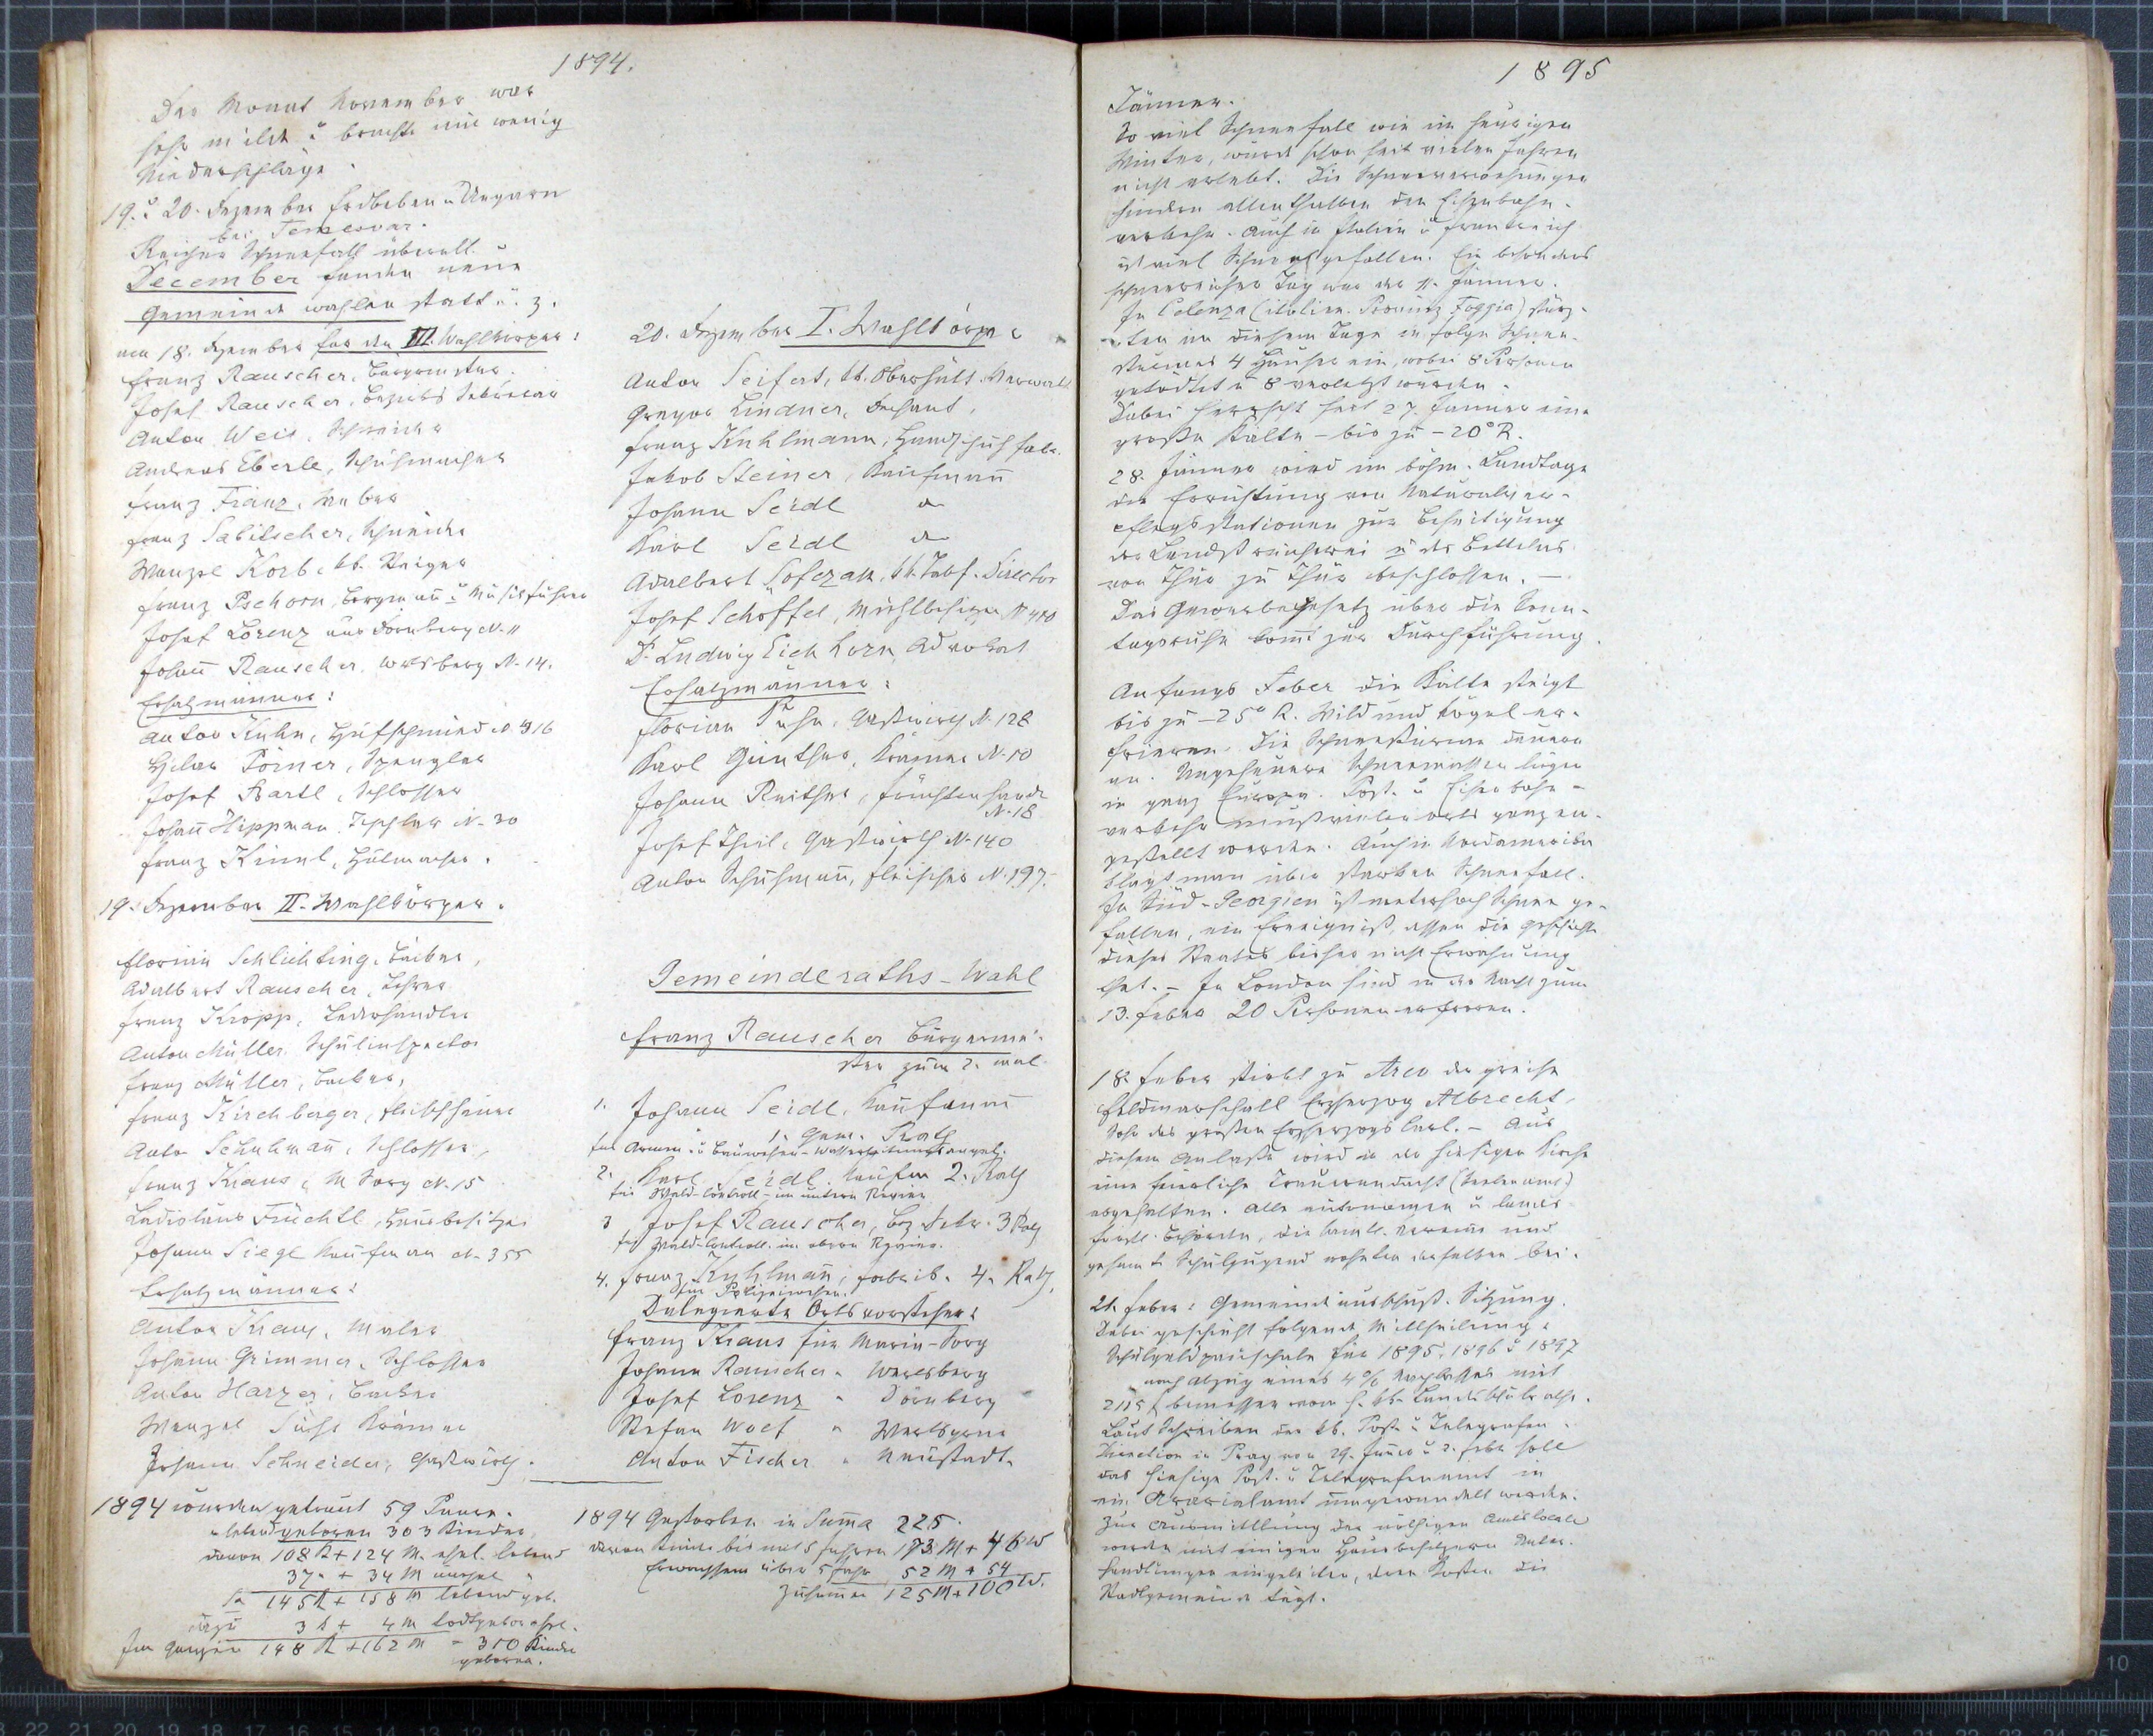 1894.
Der Monat November war
sehr milde u brachte nur wenig
Niederschläge.
19. u 20. Dezember Erdbeben in Ungarn
bei Temesvar.
Reicher Schneefall überall.
December fanden neue
Gemeindewahlen statt u. z.
am 18. Dezember für den III. Wahlkörper:
Franz Rauscher, Bürgermster.
Josef Rauscher, Bezirks Sekretär
Anton Weis, Schneider
Andreas Eberle, Schuhmacher
Franz Franz, Weber
Franz Sabitscher, Schneider
Wenzel Korb, kk. Steiger
Franz Pschorn, Bergmann u Musikführer
Josef Lorenz aus Dürnberg N. 11
Johann Rauscher Werlsberg N. 14.
Ersatzmänner:
Anton Kuhn, Hufschmied N 416
Hilar Törner, Spengler
Josef Bartl, Schlosser
Johann Hippman, Tischler N. 30
Franz Kimmel, Hutmacher.
19. Dezember II. Wahlkörper.
Florian Schlichting, Bäcker,
Adalbert Rauscher, Lehrer
Franz Kropp, Lederhändler
Anton Müller, Schulinspector
Franz Müller, Bäcker,
Franz Kirchberger, Fleischhauer
Anton Schuhmann, Schlosser,
Franz Kraus, M Sorg N. 15
Ladislaus Früchtl, Hausbesitzer
Johann Siegl Kaufmann N. 355
Ersatzmänner:
Anton Kraus, Maler
Johann Grimmer, Schlosser
Anton Harzer, Bäcker
Wenzel Süss Krämer
Johann Schneider, Gastwirth.
1894 wurden getraut 59 Paare.
lebend geboren 303 Kinder,
davon 108 K + 124 M. ehel. lebend
37 " + 34 M unehel "
Sa 145 K + 158 M lebend geb.
dazu 3 K + 4 M todtgebor. ehel.
Im Ganzen 148 K + 162 M = 310 Kinder
geboren.
20. Dezember I. Wahlkörper
Anton Seifert, kk. Oberhütt. Verwalt
Gregor Lindner, Dechant,
Franz Kuhlmann, Handschuhfabr.
Jakob Steiner, Kaufmann
Johann Seidl do
Karl Seidl do
Adalbert Sofczak, kk. Tabf. Director
Josef Schöffel, Mühlbesitzer N 410
Dr. Ludwig Eichhorn, Advokat
Ersatzmänner:
Florian Kuhn, Gastwirth N. 128
Karl Günther, Krämer N. 10
Johann Reither, Früchtenhandl
N. 18
Josef Theil, Gastwirth N. 140
Anton Schuhmann, Fleischer N. 197.
Gemeinderaths-Wahl
Franz Rauscher Bürgermei-
ster zum 2. mal
1. Johann Seidl, Kaufmann
1. Gem. Rath
für Armen- u Bauwesen - Wasserleitungsangel.
2. Karl Seidl, Kaufm 2. Rath
für Wald-Controll - im untern Revier
3 Josef Rauscher, Bez Sekr. 3 Rath
für Wald-Controll. im obern Revier.
4. Franz Kuhlmann, Fabrik. 4. Rath,
für Polizeiwesen.
Delegierte Ortsvorsteher:
Franz Kraus für Maria-Sorg
Johann Rauscher " Werlsberg
Josef Lorenz " Dürnberg
Stefan Wolf " Werlsgrün
Anton Fischer " Neustadt.
1894 Gestorben in Summa 225.
davon Kinder bis mit 5 Jahren 173 M + 46 W
Erwachsene über 5 Jahr 52 M + 54
Zusammen 125 M + 100 W.
1895
Jänner.
So viel Schneefall wie im heurigen
Winter, wurde schon seit vielen Jahren
nicht erlebt. Die Schneeverwehungen
hindern allenthalben den Eisenbahn-
verkehr. Auch in Italien u Frankreich
ist viel Schnee gefallen. Ein besonders
schneereicher Tag war der 11. Jänner.
In Celenza (italien. Provinz Foggia) stürz-
ten an diesem Tage in folge Schnee-
sturmes 4 Häuser ein, wobei 8 Personen
getödtet u 8 verletzt wurden.
Dabei herrscht seit 27. Jänner eine
große Kälte - bis zu -20° R.
28. Jänner wird im böhm. Landtage
die Errichtung von Naturalver-
pflegsstationen zur Beseitigung
der Landstreicherei u des Bettelns
von Thür zu Thür beschlossen. -
Das Gewerbegesetz über die Sonn-
tagsruhe kommt zur Durchführung.
Anfangs Feber die Kälte steigt
bis zu -25° R. Wild und Vögel er-
frieren. Die Schneestürme dauern
an. Ungeheuere Schneemassen liegen
in ganz Europa. Post- u Eisenbahn-
verkehr muß vielerorts ganz ein-
gestellt werden. Auch in Nordamerika
klagt man über starken Schneefall.
In Süd-Georgien ist meterhoch Schnee ge-
fallen, ein Ereigniß, dessen die Geschichte
dieses Staates bisher nicht Erwähnung
that. - In London sind in der Nacht zum
13. Feber 20 Personen erfroren.
18. Feber stirbt zu Arco der greise
Feldmarschall Erzherzog Albrecht,
Sohn des großen Erzherzogs Carl. - Aus
diesem Anlaße wird in der hiesigen Kirche
eine feierliche Trauerandacht (Seelenamt)
abgehalten. Alle autonomen u landes-
fürstl. Behörden, die Vereine und
gesamte Schuljugend wohnten derselben bei.
21. Feber: Gemeindeausschuß-Sitzung.
Dabei geschieht folgende Mittheilung:
Schulgeldpauschale für 1895, 1896 u 1897
nach Abzug eines 4% Nachlasses mit
2115 f bemessen vom h. kk. Landesschulrathe.
Laut Schreiben der kk. Post- u Telegrafen-
Direction in Prag vom 29. Jänner u 2. Feber soll
das hiesige Post- u Telegrafenamt in
ein Ärarialamt umgewandelt werden.
Zur Ausmittlung der nöthigen Amtslocale
werden mit einigen Hausbesitzern Unter-
handlungen eingeleitet, deren Kosten die
Stadtgemeinde trägt.